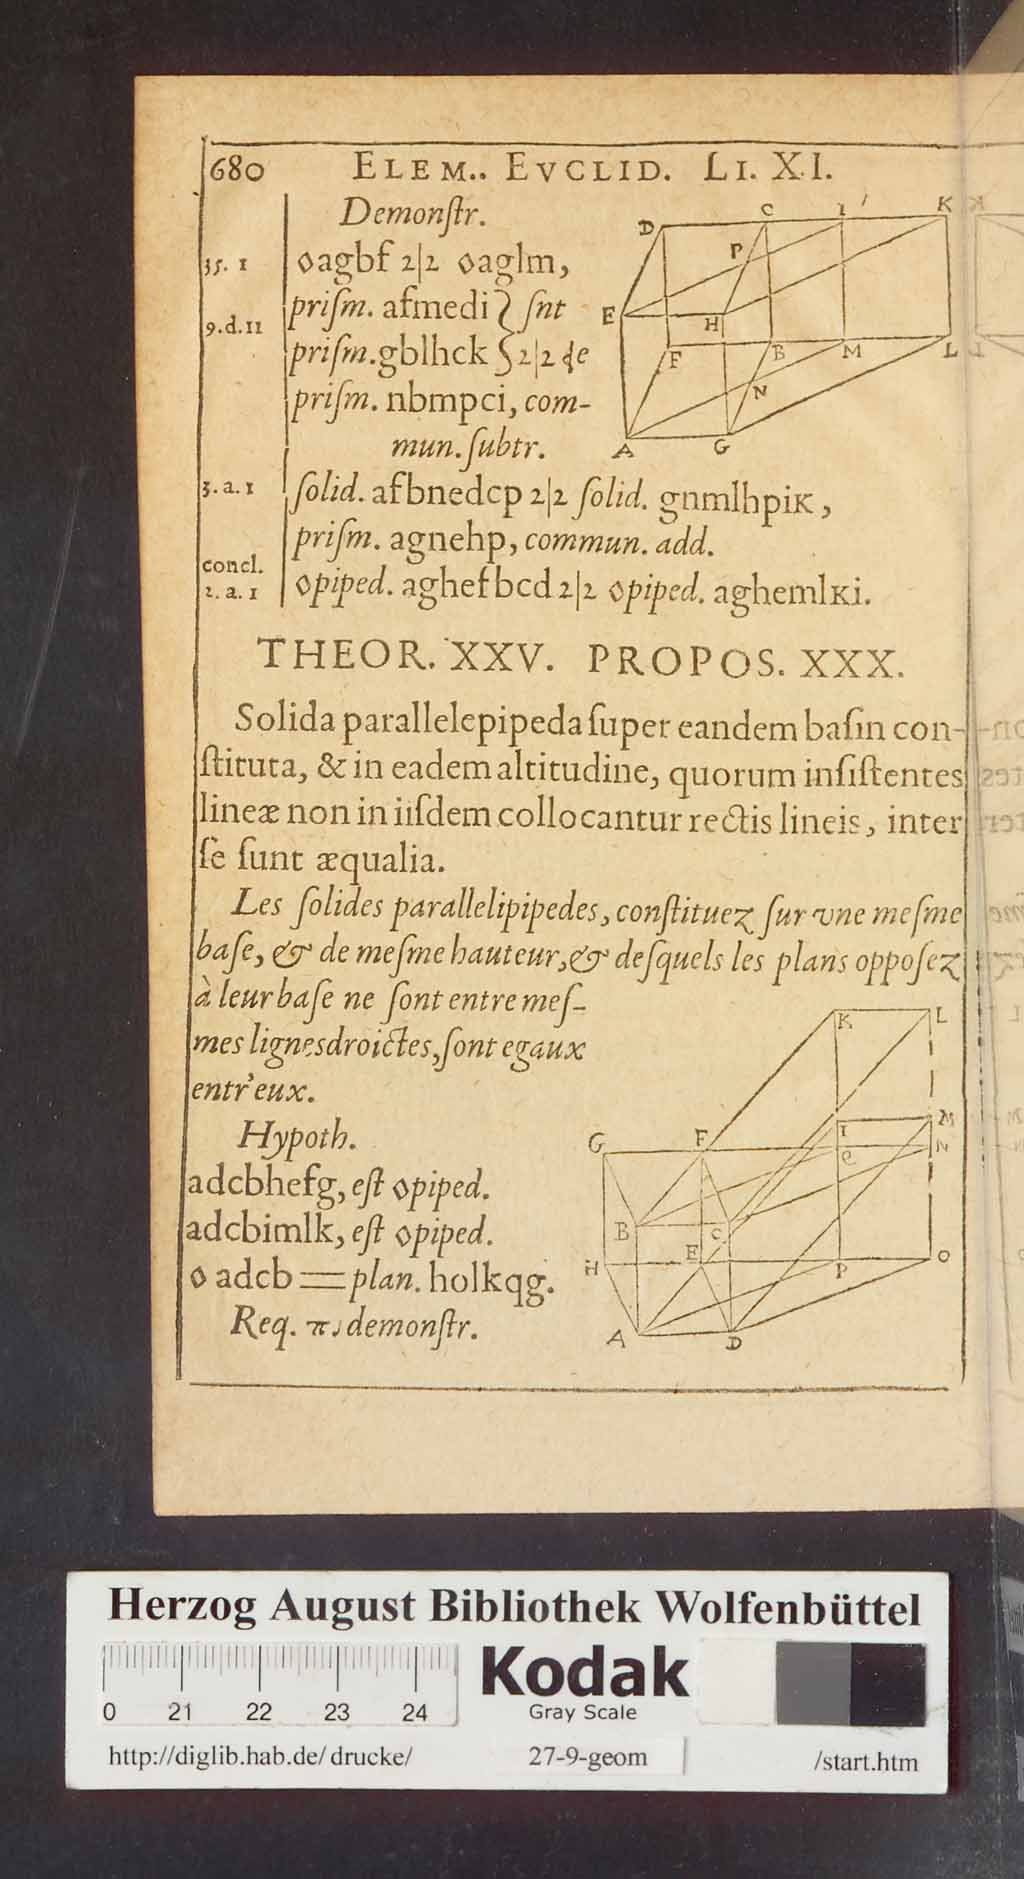 680 ELEM.. EVCLID. LI. XI.
Demonſtr.
35. 1 ◊agbf 2|2 ◊aglm,
priſm. afmedi } ſnt
9.d.11
priſm.gblhck } 2|2 de
priſm. nbmpci, com-
mun.ſubtr.
3. a. 1 ſolid. afbnedcp 2|2 ſolid. gnmlhpiκ,
priſm. agnehp, commun. add.
concl.
2. a. 1 ◊piped. aghefbcd 2|2 ◊piped. aghemlκi.
D C I K
P
E H
F B M L
N
A G
THEOR. XXV. PROPOS. XXX.
Solida parallelepipeda ſuper eandem baſin con-
ſtituta, & in eadem altitudine, quorum inſiſtentes
lineæ non in iiſdem collocantur rectis lineis, inter
ſe ſunt æqualia.
Les ſolides parallelipipedes, conſtituez ſur vne meſme
baſe, & de meſme hauteur,& deſquels les plans oppoſez
à leur baſe ne ſont entre meſ-
mes lignes droictes, ſont egaux
entr'eux.
Hypoth.
adcbhefg, eſt ◊piped.
adcbimlk, eſt ◊piped.
◊ adcb = plan. holkqg.
Req. π. demonſtr.
K L
G F I M
Q N
B C
H E P O
A D
Herzog August Bibliothek Wolfenbüttel
Kodak
Gray Scale
0 21 22 23 24
http://diglib.hab.de/drucke/ 27-9-geom /start.htm